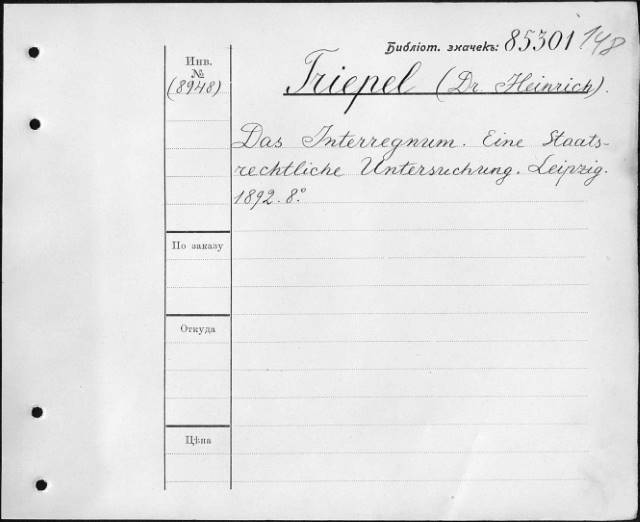 Библіот. значекъ: 85301 148
Инв.
№
(8948)
Triepel (Dr. Heinrich).
Das Interregnum. Eine Staats-
rechtliche Untersuchung. Leipzig.
1892. 8.°
По заказу
Откуда
Цѣна